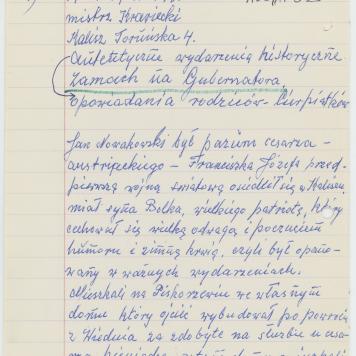 mistrz Krawiecki
Kalisz Toruńska 4.
Autetyczne wydarzenia historyczne
Zamach na Gubernatora
Opowiadania rodziców
Jan Nowakowski był paziem cesarza –
austrijeckiego – Franciszka Józefa przed
pierwszą wojną światową osiedlił się w Kaliszu
miał syna Bolka, wielkiego patriotę, który
cechował się wielką odwagą i poczuciem
humoru i zimną krwią, czyli był opano-
wany w ważnych wydarzeniach.
Mieszkali na Piskorzewiu we własnym
domu który ojciec wybudował po powrocie
z Wiednia za zdobyte na służbie u cesa-